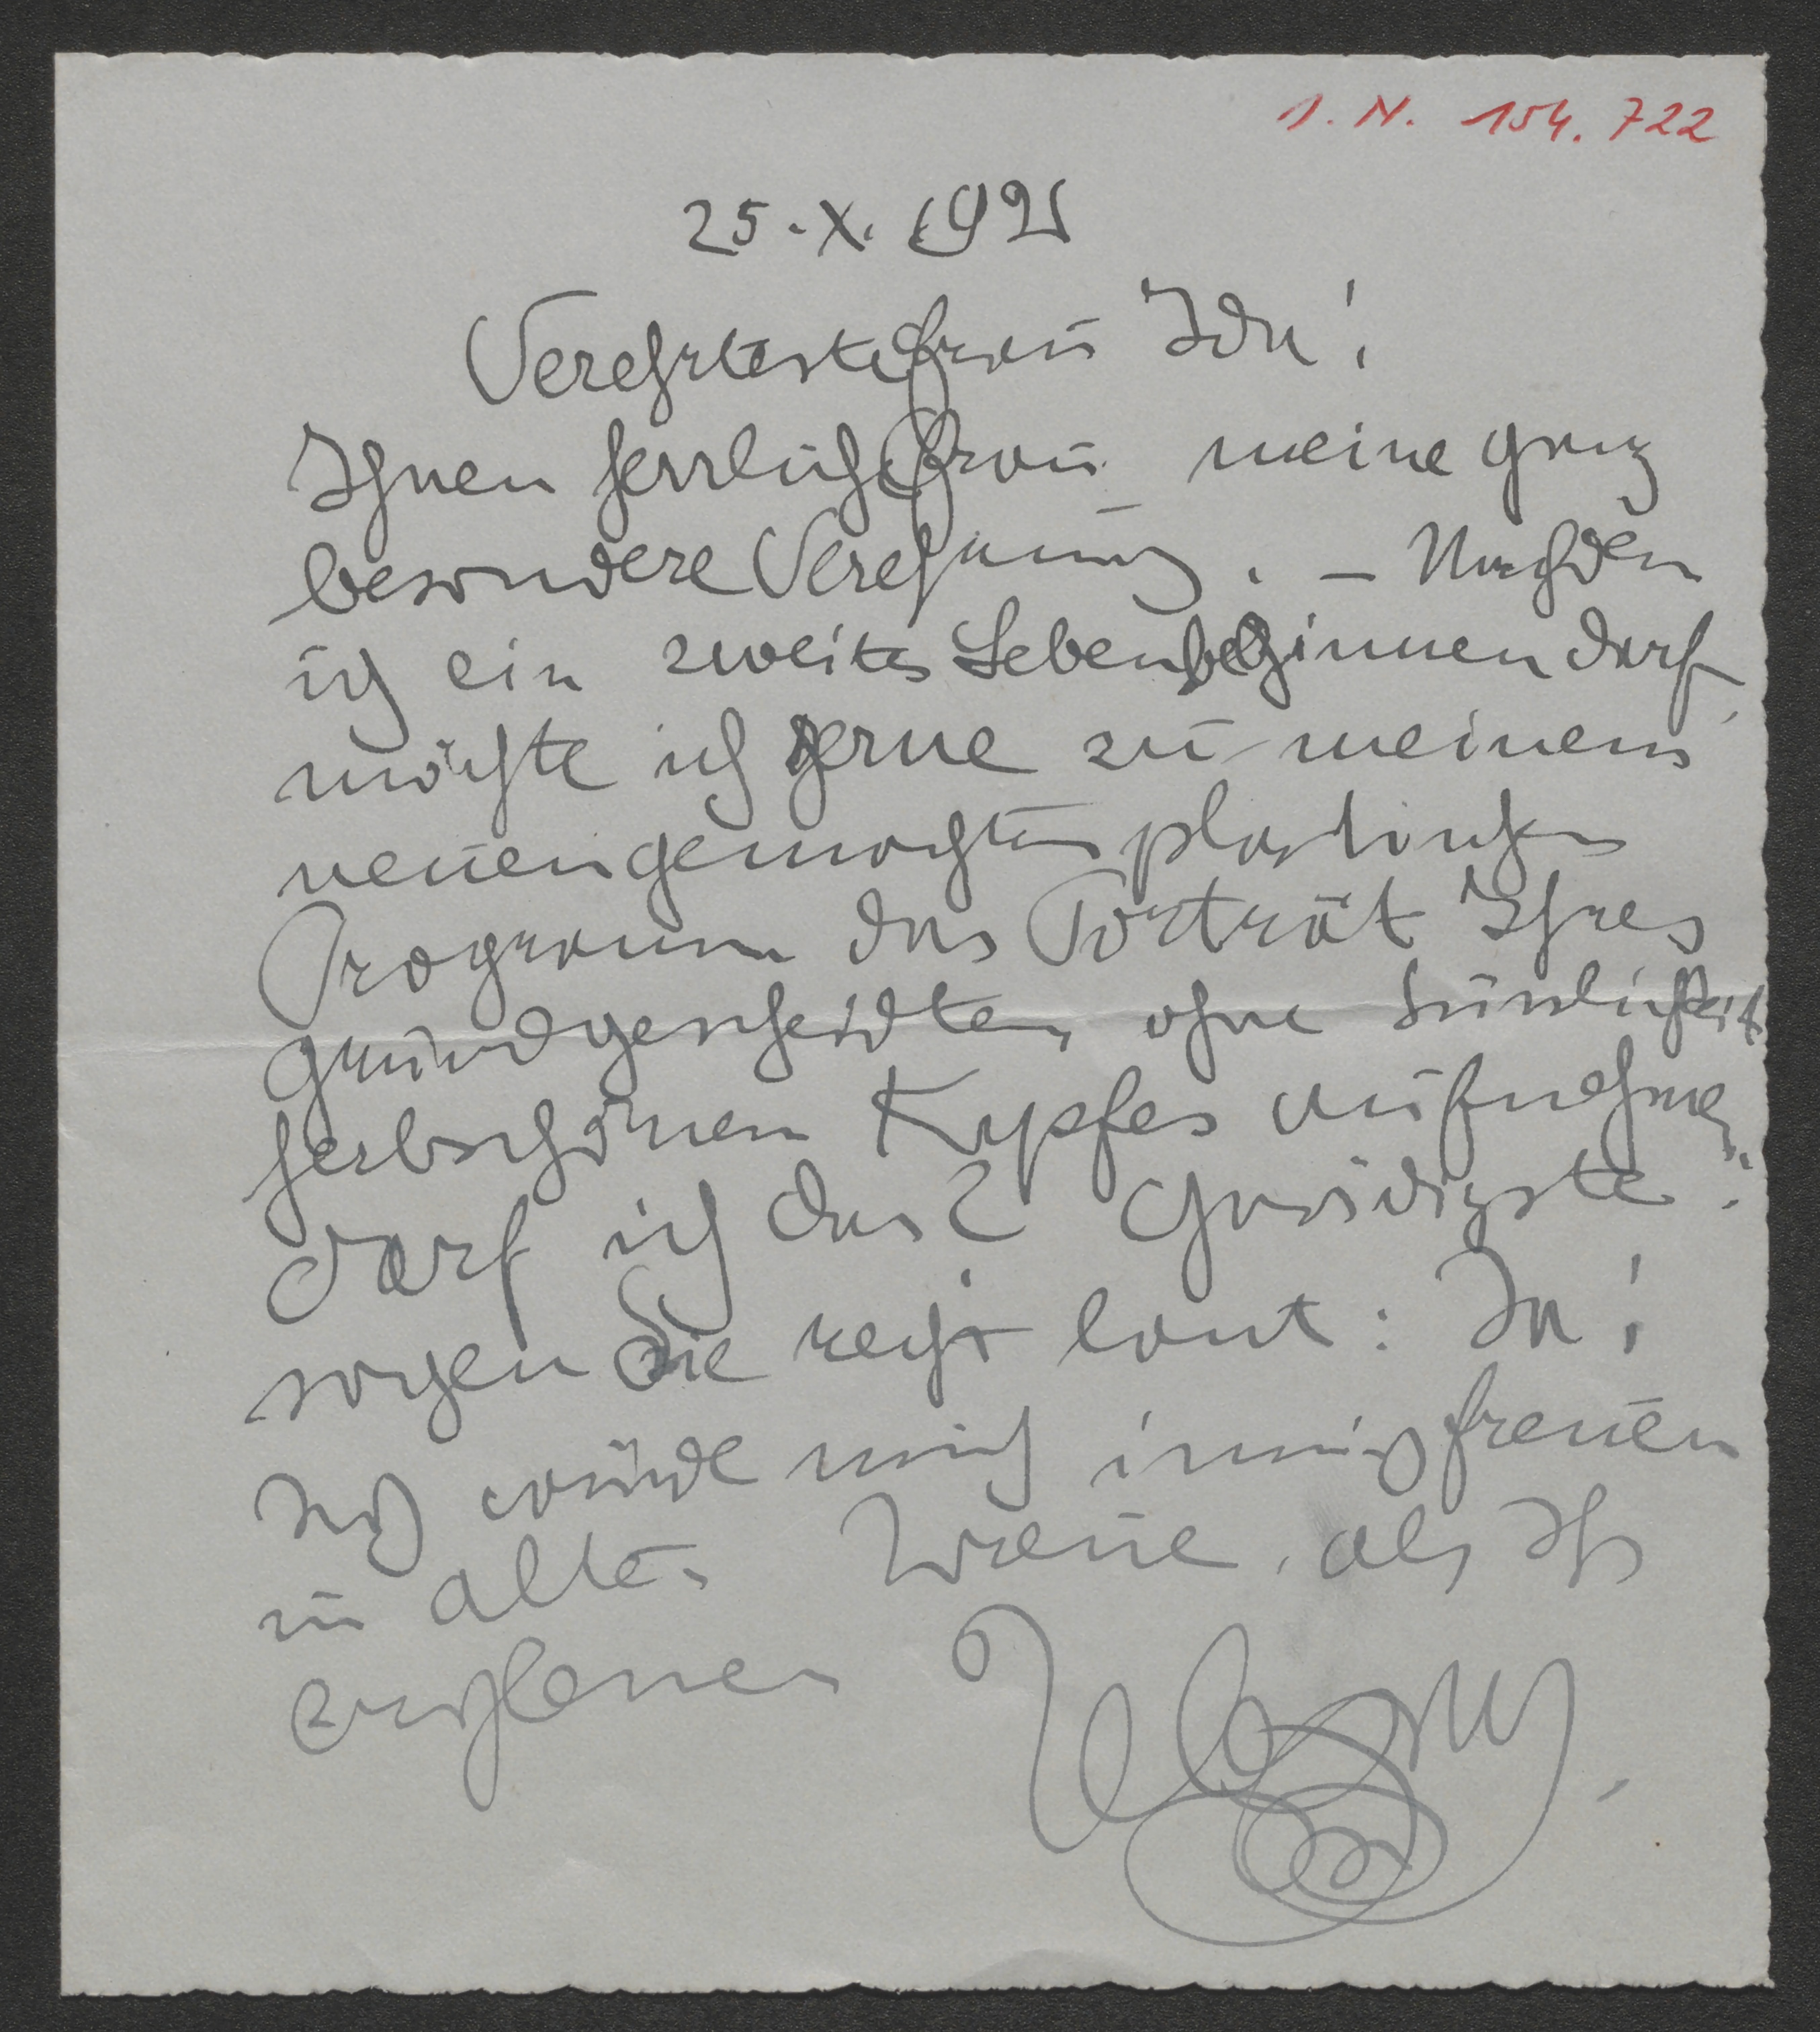 I. N. 154.722
25. X. 1921
Verehrteste Frau Ida!
Ihnen herrliche Frau meine ganz
besondere Verehrung. – Nachdem
ich ein zweites Leben beginnen darf,
möchte ich gerne zu meinem
neuen gemachten plastischen
Programm das Porträt Ihres
grundgescheidten, ohne Süsslichkeit
herbschönen Kopfes aufnehmen
darf ich das? Gnädigste!
sagen Sie recht laut: Ja!
Ich würde mich innig freuen
in alter Treue, als Ihr
ergebener